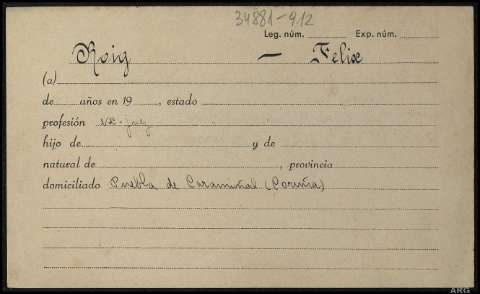 34881-912
Leg. núm. Exp. núm.
Roig — Félix
(a)
de años en 19 , estado
profesión ex-juez
hijo de y de
natural de , provincia
domiciliado Puebla de Caramiñal (Coruña)
ARG